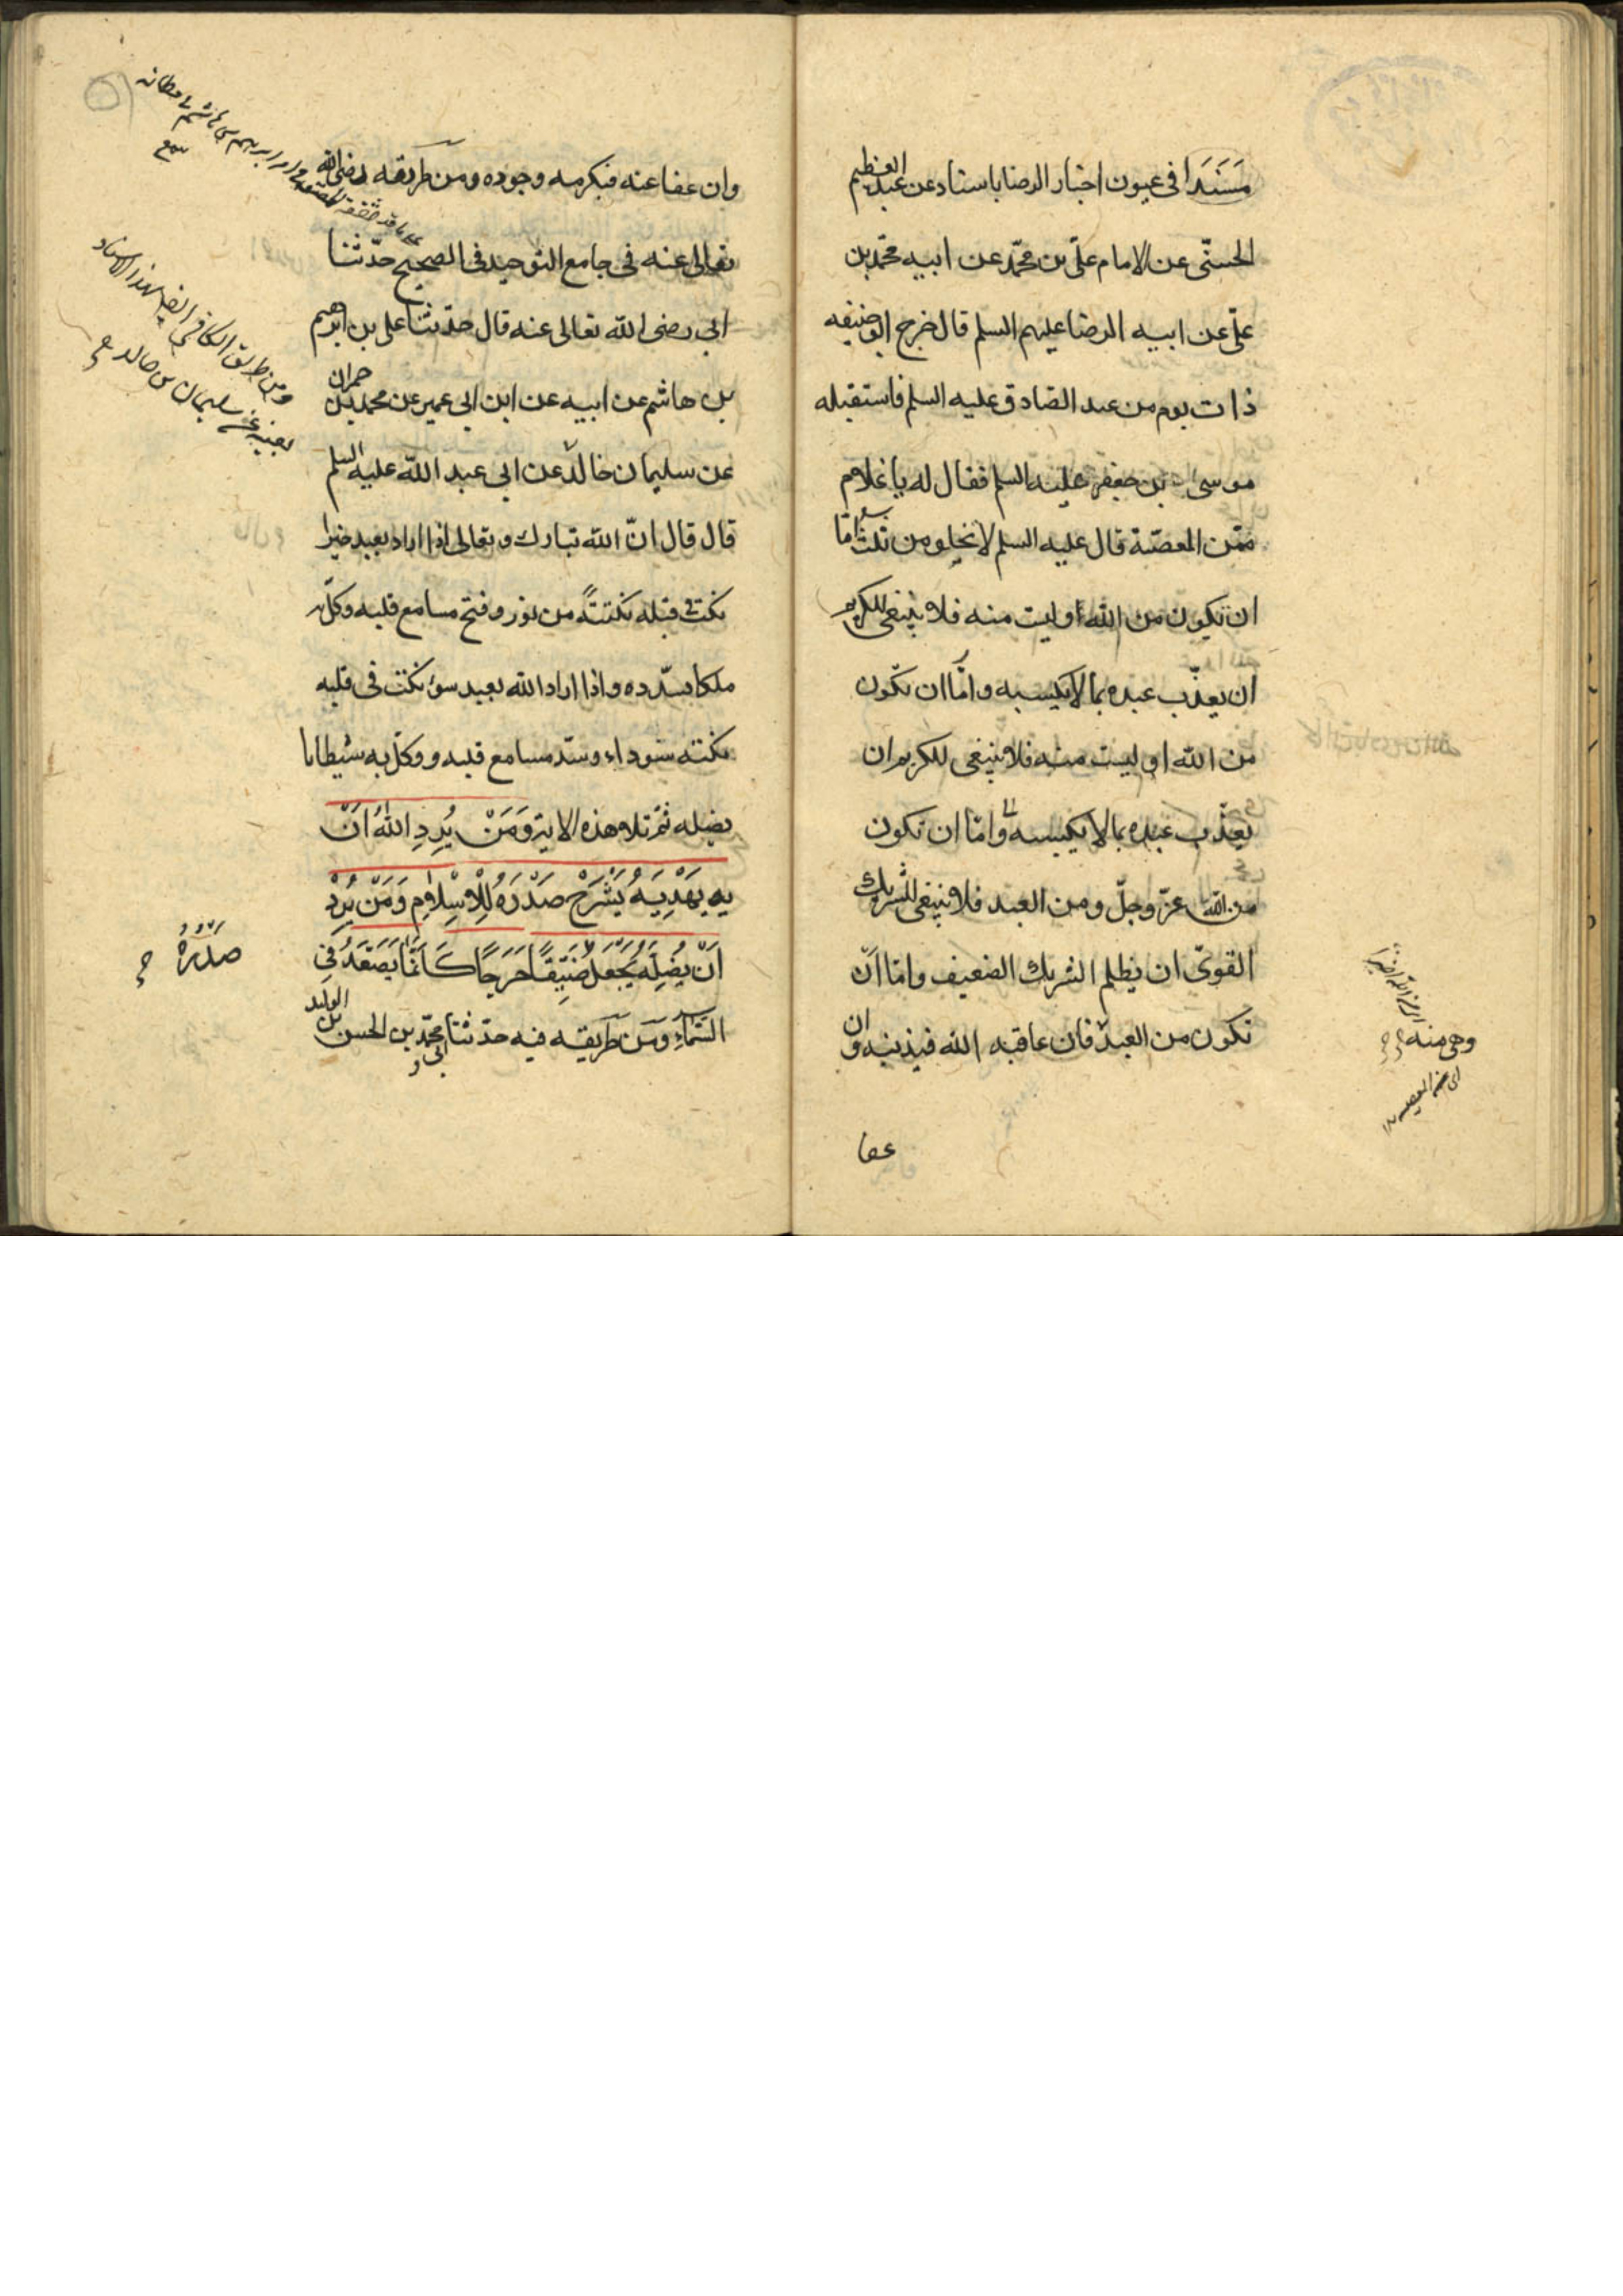 مسندا فى عيون اخبار الرضا باسناد عن عبد العظيم
الحسنى عن الامام علىّ بن محمّد عن ابيه محمّد بن
علىّ عن ابيه الرضا عليهم السلم قال خرج ابو حنيفه
ذات يوم من عند الصادق عليه السلم فاستقبله
موسى بن جعفر عليه السلم فقال له يا غلام
ممّن المعصية قال عليه السلم لا يخلو من ثلث امّا
ان تكون من الله او ليست منه فلا ينبغى للكريم
ان يعذّب عبده بما لا يكسبه و امّا ان تكون
من الله او ليست منه فلا ينبغى للكريم ان
يعذّب عبده بما لا يكسبه و امّا ان تكون
من الله عزّ وجلّ ومن العبد فلا ينبغى للشريك
القوىّ ان يظلم الشريك الضعيف و امّا انّ
تكون من العبد فان عاقبه الله فبذنبه وان
وهى منه
عفا
وان عفا عنه فبكرمه وجوده ومن طريقه رضى الله
تعالى عنه فى جامع التوحيد فى الصحيح حدّثنا
ابى رضى الله تعالى عنه قال حدّثنا على بن ابرهيم
بن هاشم عن ابيه عن ابن ابى عمير عن محمد بن حمران
عن سليمان خالد عن ابى عبد الله عليه السلم
قال قال انّ الله تبارك و تعالى اذا اراد بعبد خيرا
نكت فى قبله نكتتةً من نور و فتح مسامع قلبه وكّل به
ملكا يسدّده و اذا اراد الله بعبد سوء نكت فى قلبه
نكتة سوداء و سدّ مسامع قلبه و وكّل به شيطانا
يضله ثمّ تلا هذه الاية وَمَنْ يُرِدِ اللهُ اَنّ
يه يَهْدِيَهُ يَشْرَحْ صَدْرَهُ لِلْاِسْلَامِ وَمَنْ يُرِدْ
اَنْ يُضِلَّهُ يَجْعَلْ ضَيِّقًا حَرَجًا كَاَنَّمَا يَصَّعَّدُ فِى
صَدْرَهُ
السَّمَاءِ ومن طريقه فيه حدّثنا محمّد بن الحسن بن الوليد
ومن طريق الكافى ايضا بهذا الاسناد
بعينه عن سليمان بن خالد